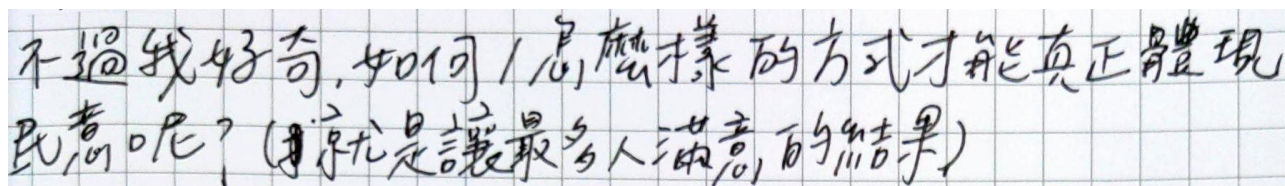 不過我好奇,如何/怎麼樣的方式才能真正體現
民意呢?(就是讓最多人滿意的結果)